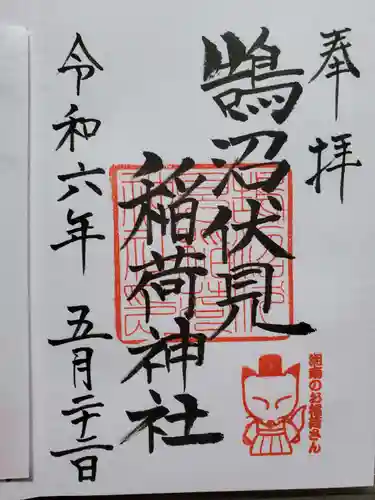 奉拝
鵠沼伏見
稲荷神社
湘南のお稲荷さん
令和六年 五月二十二日